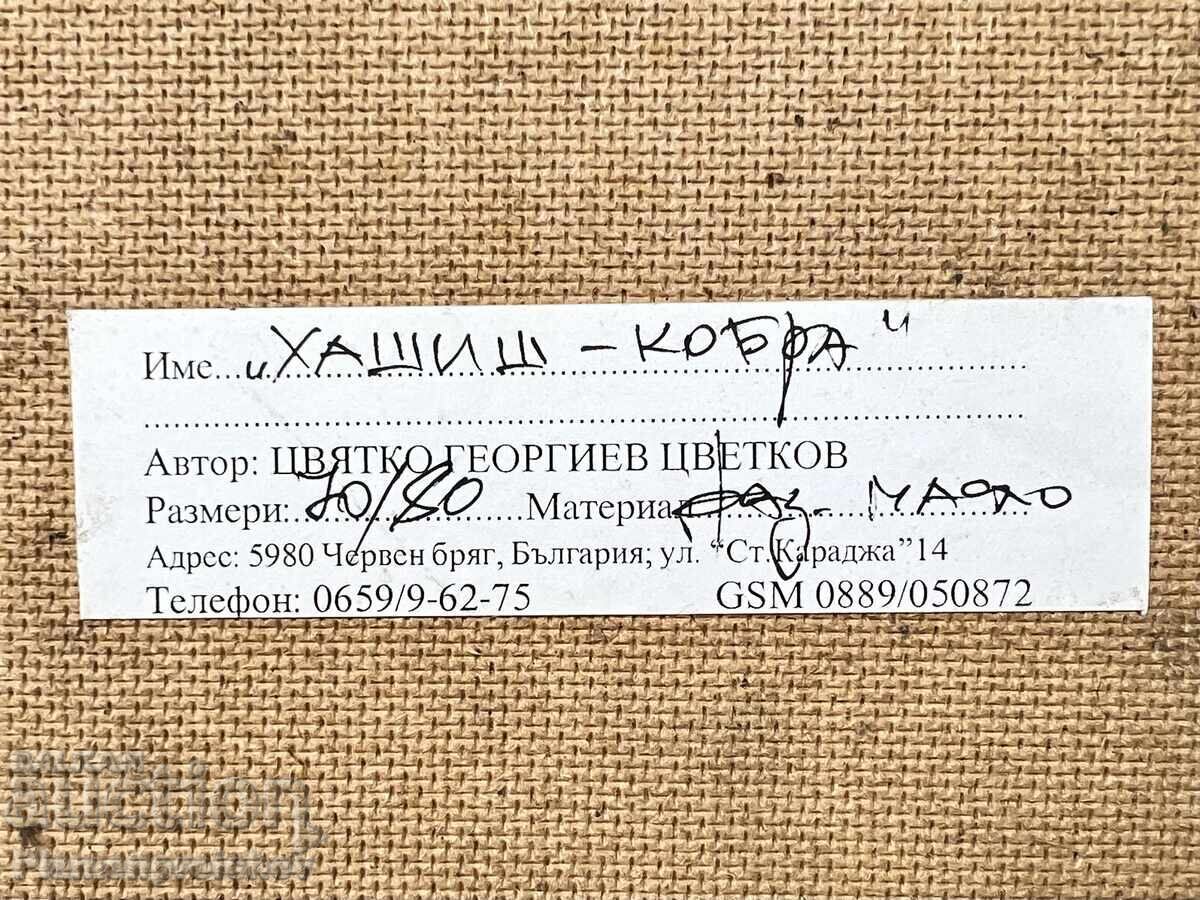 Име....„ХАШИШ - КОБРА"
Автор: ЦВЯТКО ГЕОРГИЕВ ЦВЕТКОВ
Размери: 70/80 Материал фаз. МАСЛО
Адрес: 5980 Червен бряг, България; ул. “Ст.Караджа”14
Телефон: 0659/9-62-75 GSM 0889/050872
BALKAN
auction